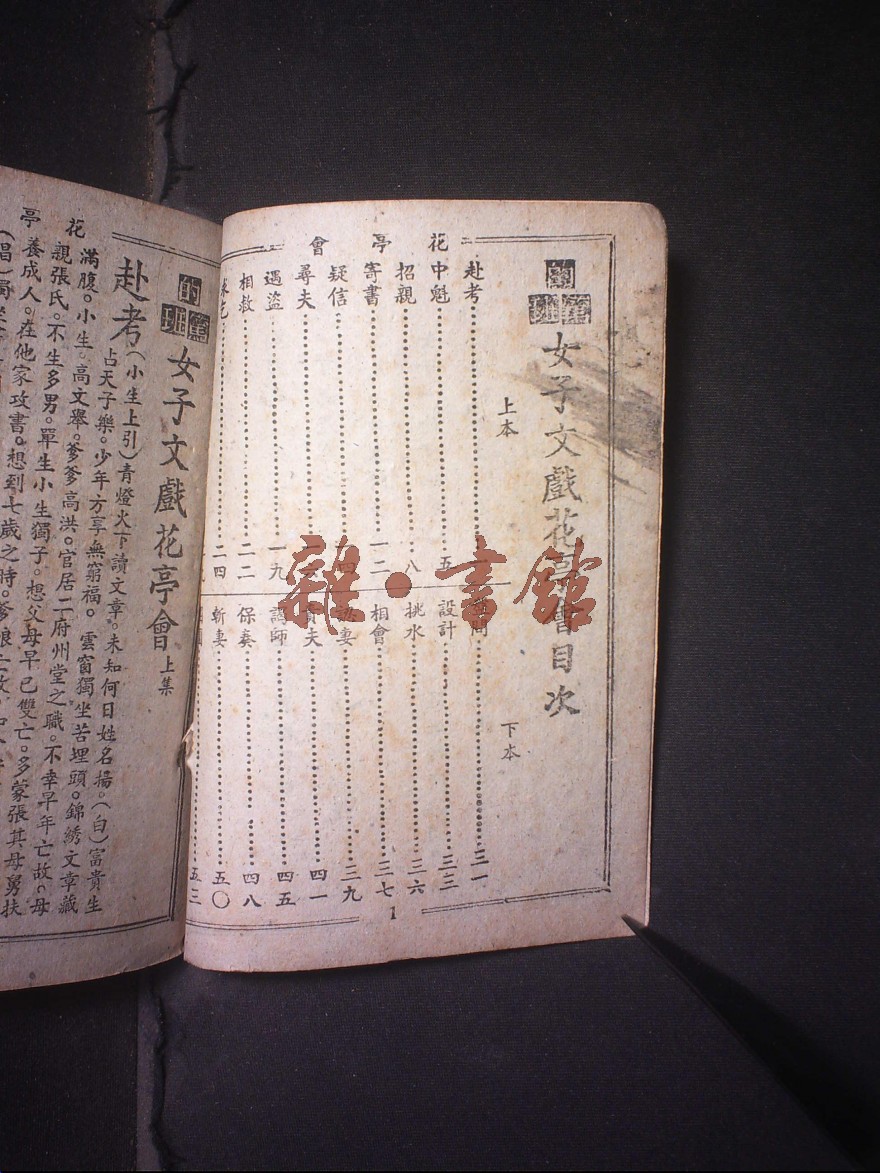 的篤班
女子文戲花亭會目次
上本
下本
花亭會
赴考
花中魁 五
招親 八
寄書 一二
疑信
尋夫
遇盜 一九
相救 二二
二四
三一
設計 三三
挑水 三六
相會 三七
妻 三九
夫 四一
師 四五
保奏 四八
斬妻 五〇
五三
1
雜·書館
的篤班
女子文戲花亭會 上集
赴考(小生上引)青燈火下讀文章。未知何日姓名揚。(白)富貴生
占天子樂。少年方享無窮福。雲窗獨坐苦埋頭。錦綉文章藏
滿腹。小生。高文舉。爹爹高洪。官居一府州堂之職。不幸早年亡故。母
親張氏。不生多男。單生小生獨子。想父母早已雙亡。多蒙張其母舅扶
養成人。在他家攻書。想到七歲之時。爹娘亡故。
花亭